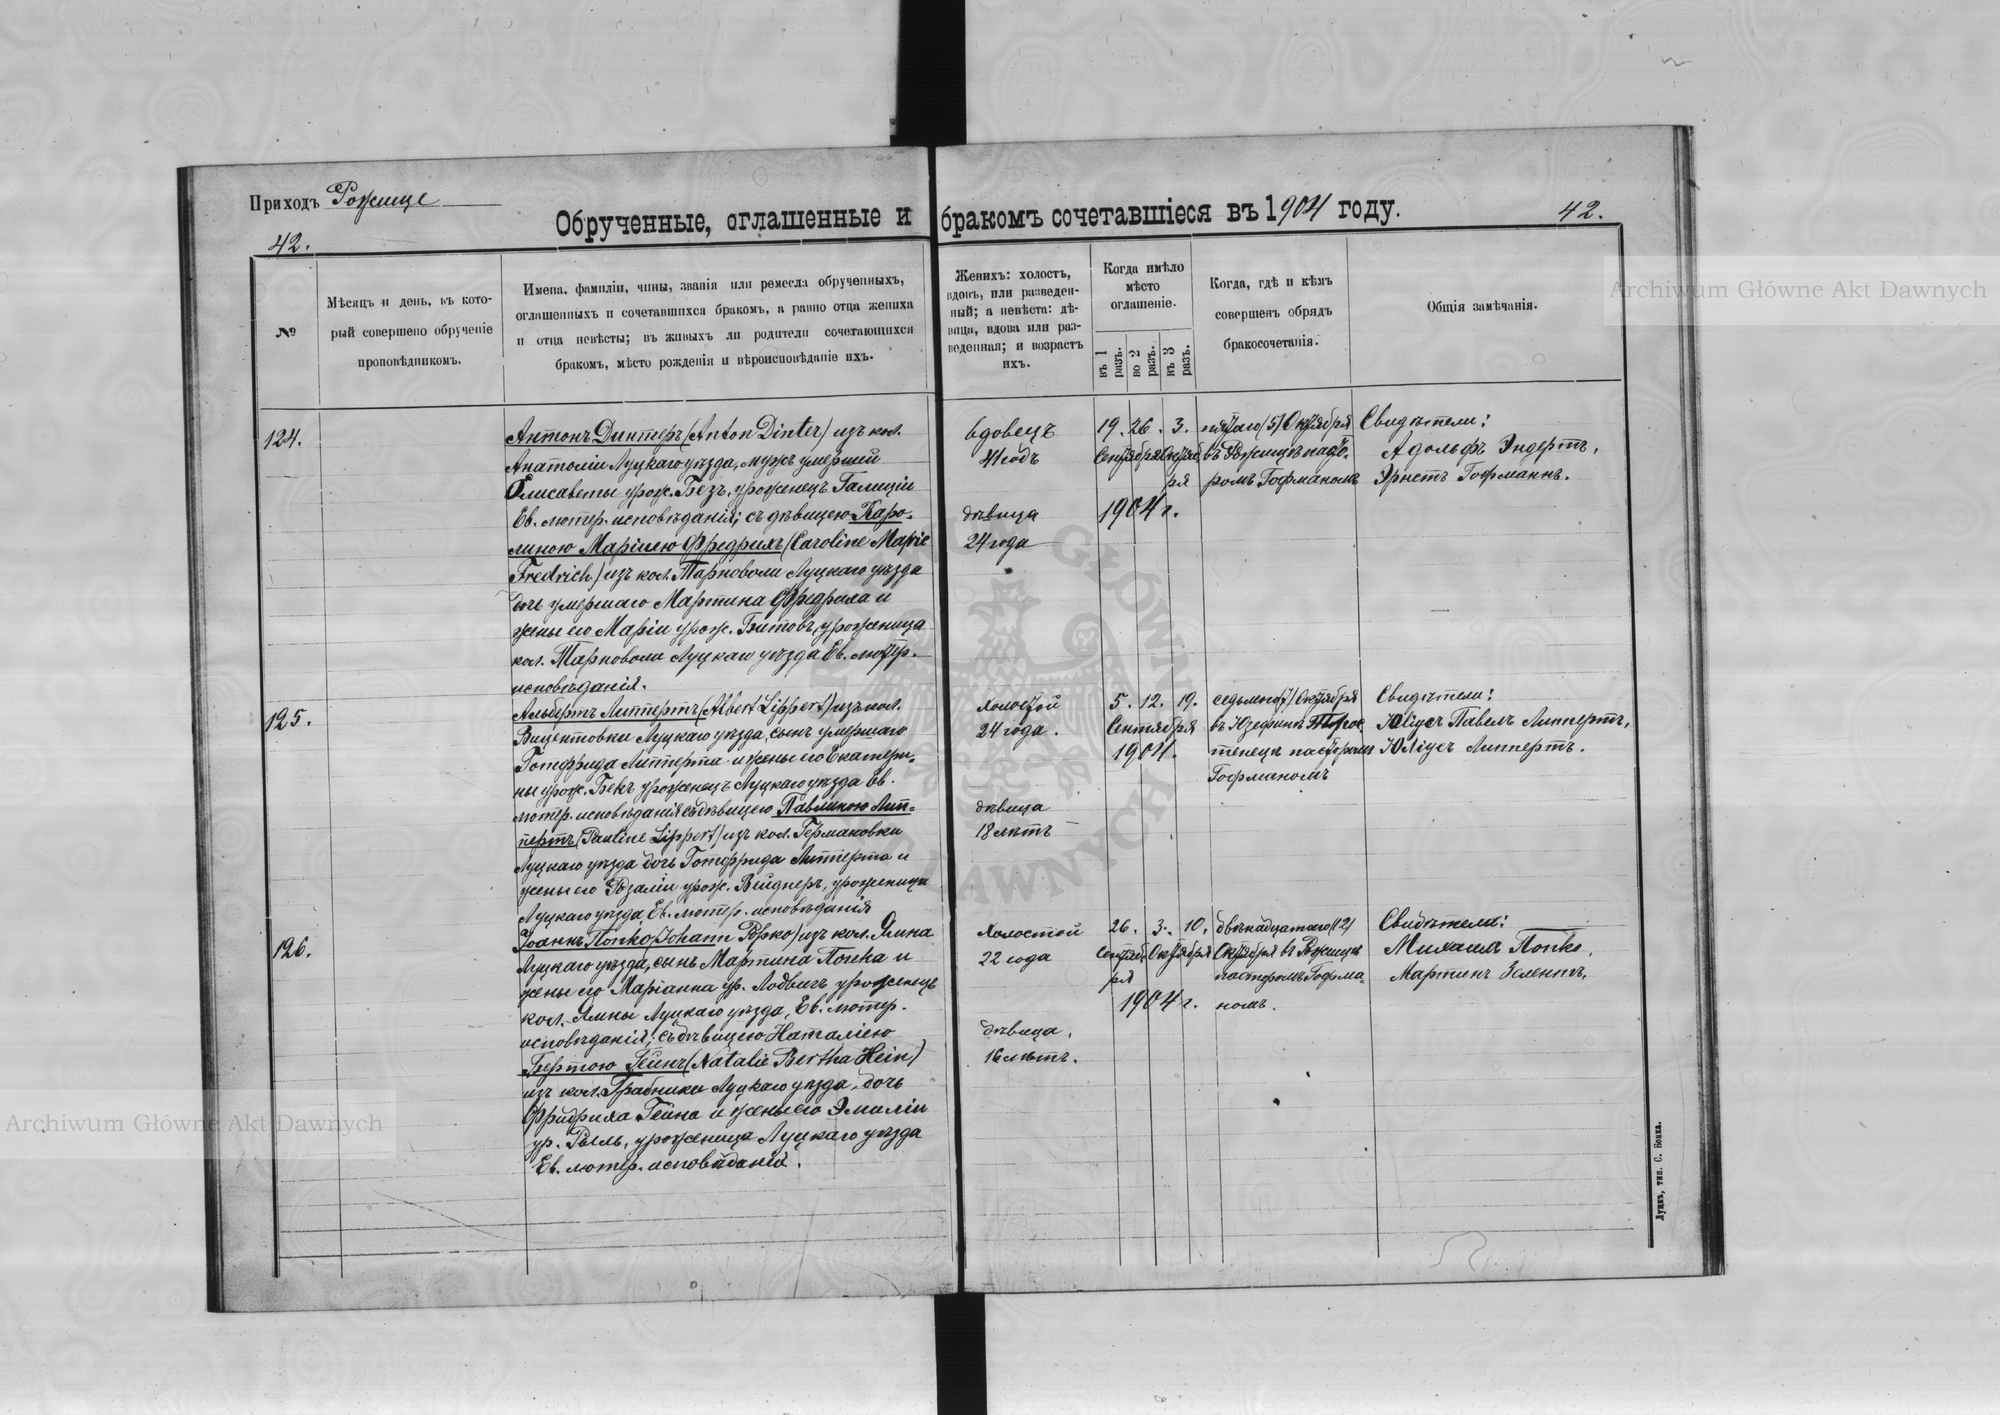 Приходъ Рожище
Обрученные, оглашенные и бракомъ сочетавшіеся въ 1904 году.
42.
42.
№
Мѣсяцъ и день, въ кото-
рый совершено обрученіе
проповѣдникомъ.
Имена, фамиліи, чины, званія или ремесла обрученныхъ,
оглашенныхъ и сочетавшихся бракомъ, а равно отца жениха
и отца невѣсты; въ живыхъ ли родители сочетающихся
бракомъ, мѣсто рожденія и вѣроисповѣданіе ихъ.
Женихъ: холостъ,
вдовъ, или разведен-
ный; а невѣста: дѣ-
вица, вдова или раз-
веденная; и возрастъ
ихъ.
Когда имѣло
мѣсто
оглашеніе.
въ 1
разъ.
во 2
разъ.
въ 3
разъ.
Когда, гдѣ и кѣмъ
совершенъ обрядъ
бракосочетанія.
Общія замѣчанія.
124.
Антонъ Динтеръ (Anton Dinter) изъ кол.
Анатоліи Луцкаго уѣзда, мужъ умершей
Елисаветы урож. Безъ, уроженецъ Галиціи
Ев. лютер. исповѣданія; съ дѣвицею Каро-
линою Маріею Фредрихъ (Caroline Marie
Fredrich) изъ кол. Тарноволи Луцкаго уѣзда
дочь умершаго Мартина Фредриха и
жены его Маріи урож. Битовъ, уроженица
кол. Тарноволи Луцкаго уѣзда Ев. лютер.
исповѣданія.
вдовецъ
41 годъ
дѣвица
24 года
19. 26. 3.
Сентября Октяб
ря
1904 г.
пятаго (5) Октября
въ Рожищѣ пасто-
ромъ Гофманомъ
Свидѣтели:
Адольфъ Эндертъ,
Эрнстъ Гофманнъ.
125.
Альбертъ Липпертъ (Albert Lippert) изъ кол.
Вицентовки Луцкаго уѣзда, сынъ умершаго
Готфрида Липперта и жены его Екатери-
ны урож. Бекъ уроженецъ Луцкаго уѣзда Ев.
лютер. исповѣданія съ дѣвицею Павлиною Лип-
пертъ (Pauline Lippert) изъ кол. Германовки
Луцкаго уѣзда дочь Готфрида Липперта и
жены его Розаліи урож. Вейднеръ, уроженица
Луцкаго уѣзда, Ев. лютер. исповѣданія
холостой
24 года.
дѣвица
18 лѣтъ
5. 12. 19.
Сентября
1904.
седьмого (7) Октября
въ Юзефинѣ
пасторомъ
Гофманомъ
Свидѣтели:
Павелъ Липпертъ,
Юліусъ Липпертъ.
126.
Іоаннъ Попко (Johann Popko) изъ кол. Ямна
Луцкаго уѣзда, сынъ Мартина Попка и
жены его Маріанна ур. Лодвигъ уроженецъ
кол. Ямны Луцкаго уѣзда, Ев. лютер.
исповѣданія; съ дѣвицею Наталіею
Бертою Гейнъ (Natalie Bertha Hein)
изъ кол. Грабники Луцкаго уѣзда, дочь
Фридриха Гейна и жены его Эмиліи
ур. Рыль, уроженица Луцкаго уѣзда
Ев. лютер. исповѣданія.
холостой
22 года
дѣвица,
16 лѣтъ.
26. 3. 10.
Сентяб Октября
ря
1904 г.
двѣнадцатаго (12)
Октября въ Рожищѣ
пасторомъ Гофма-
номъ.
Свидѣтели:
Михаилъ Попко,
Мартинъ Зелентъ,
Луцкъ, тип. С. Бонка.
Archiwum Główne Akt Dawnych
Archiwum Główne Akt Dawnych